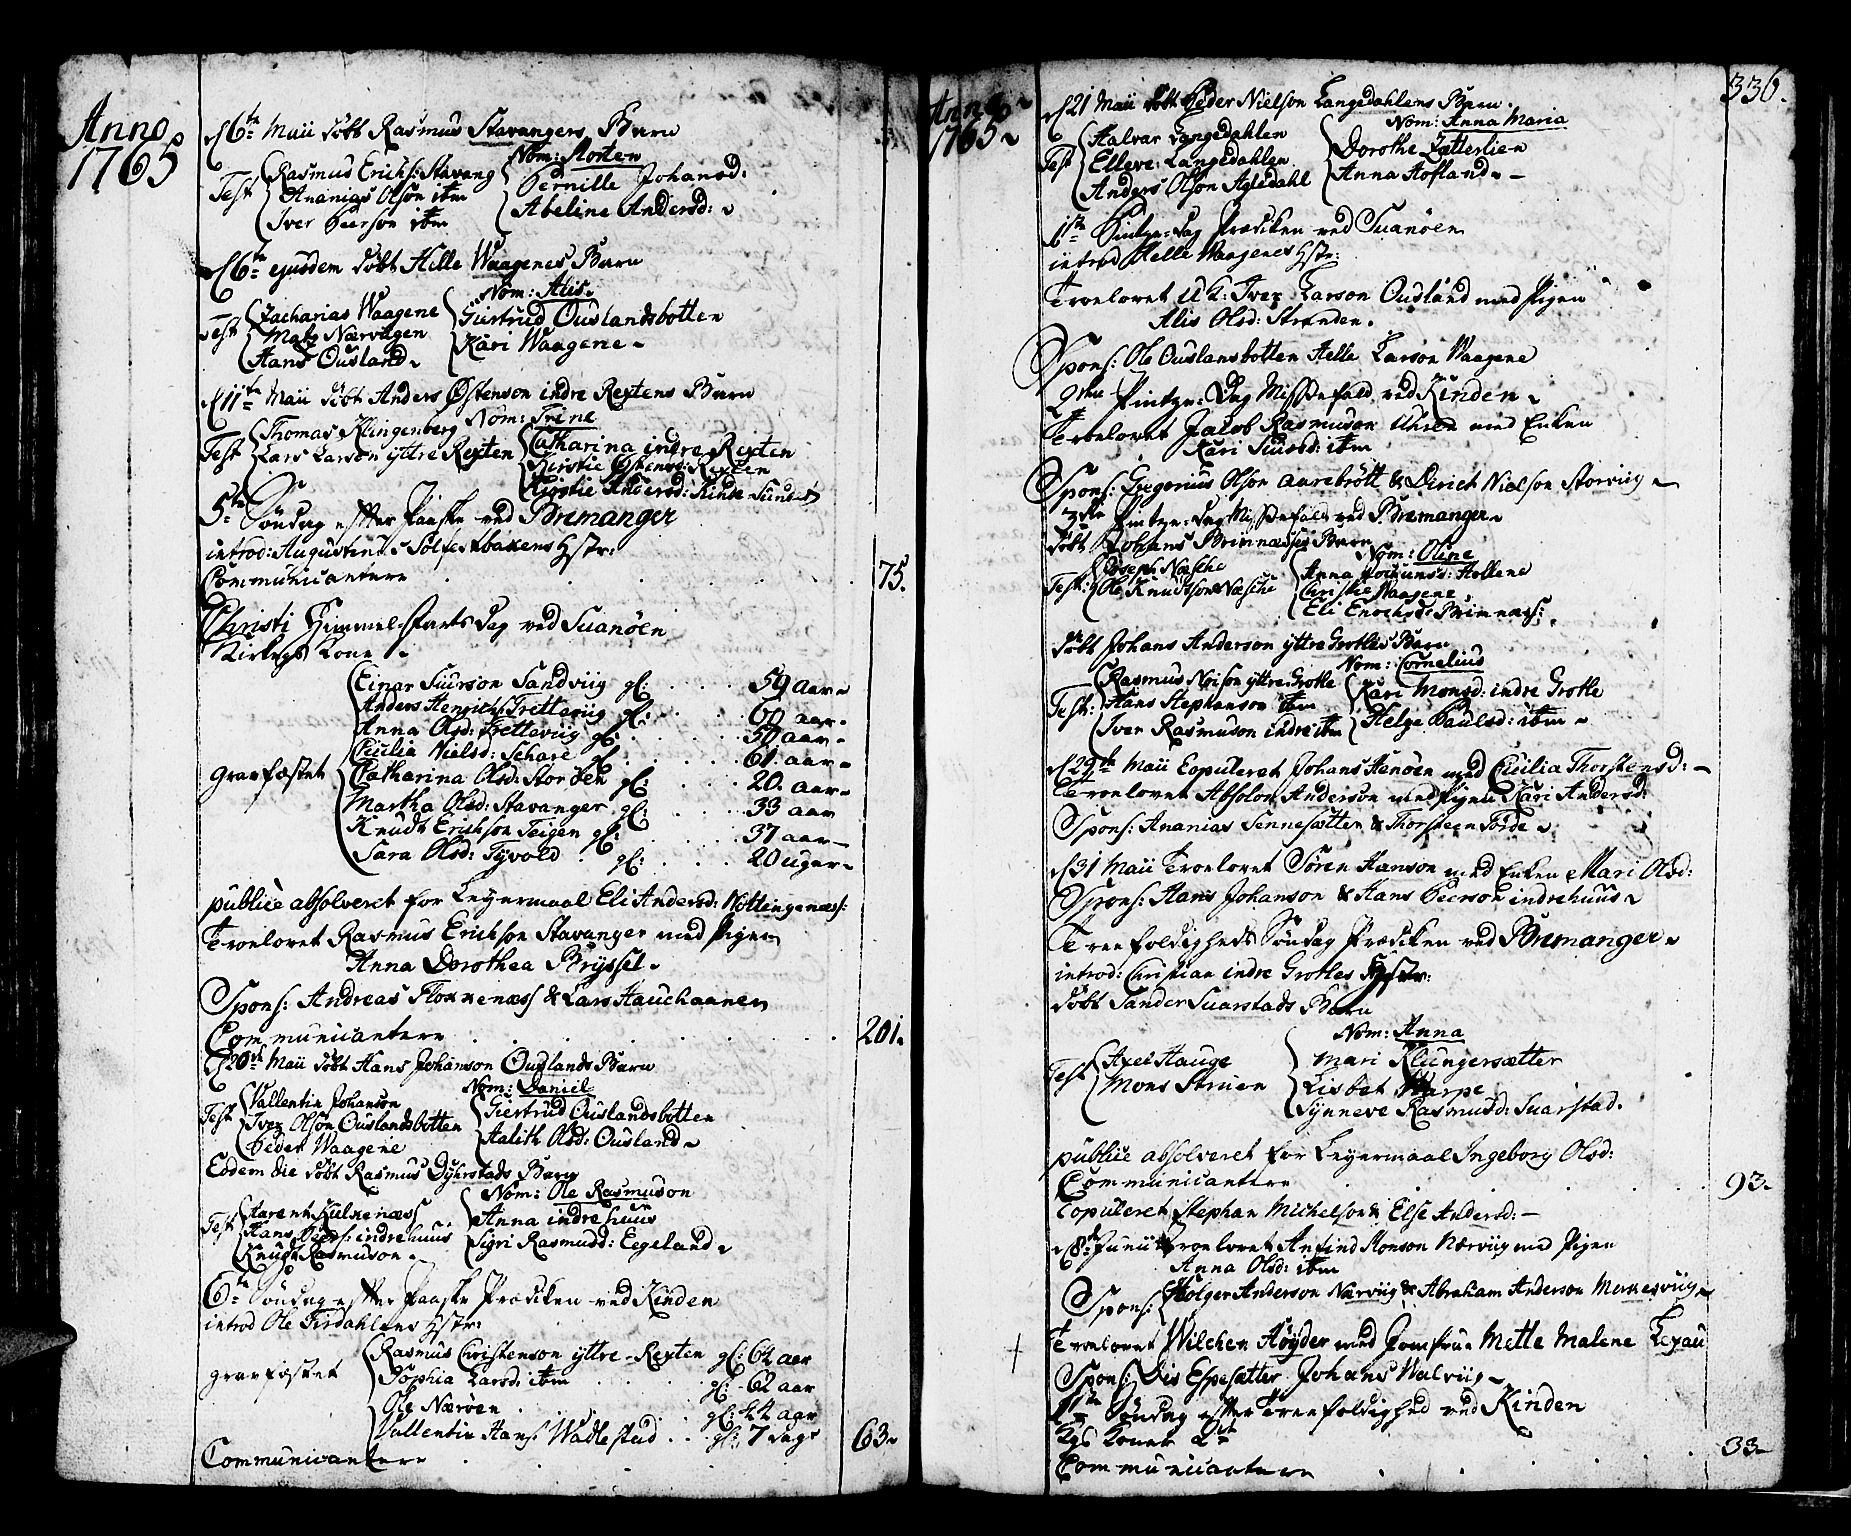 Anno
1765
d 6te Maii döbt Rasmus Stavangers Barn
Nom: Morten
Test Rasmus Erichs: Stavang
Ananias Olson itm
Iver Peerson itm
Pernille Johansd:
Abeline Andersd:
d 6te ejusdem döbt Helle Waagenes Barn
Nom: Alis.
Test Zacharias Waagene
Matz Nærvügen
Hans Ousland
Giertrud Ouslandsbotten
Kari Waagene
d 11te Maii döbt Anders Østenson indre Rextens Barn
Nom: Trine
Test Thomas Klingenberg
Lars Larson yttre Rexten
Catharina indre Rexten
Kirstie Østensd: Rexten
Kirstie Andersd: Kinde Sund
5te Söndag effter Paaske ved Bremanger
introd: Augustinus Hstr:
Communicantere 75.
Christi Himmelfarts Dag ved Suanöen
Kirkegs Kone
gravfæstet
Einar Siurson Sandviig gl: 59 aar
Anders Henrichs: Tretteviig gl: 60 aar
Anna Olsd: Trettevüg gl: 50 aar
Cicilia Nielsd: Schare gl: 61 aar
Catharina Olsd: Storöen gl: 20. aar
Martha Olsd: Stavanger gl: 33 aar
Knudt Erichson Teigen gl: 37 aar
Sara Olsd: Tyvold gl: 20 uger
publice absolveret for Leyermaal Eli Andersd: Nöttingenæss:
Troelovet Rasmus Erichson Stavanger med Pigen
Anna Dorothea Bryssel
Spons: Andreas Flokkenæss & Lars Hauchaanen
Communicantere 201.
d 20de Maii döbt Hans Johanson Ouslands Barn
Nom: Daniel
Test Vallentin Johanson
Iver Olson Ouslandsbotten
Peder Waagene
Giertrud Ouslandsbotten
Aalith Olsd: Ousland
Eodem die döbt Rasmus Dyhrstads Barn
Nom: Ole Rasmuson
Test Aarent Kulkenæss
Hans Peers: indrehuus
Knudt Rasmuson
Anna indrehuus
Sigri Rasmusd: Eigeland
6te Söndag effter Paaske Prædiken ved Kinden
introd Ole Hstr:
gravfæstet
Rasmus Christenson yttre-Rexten gl: 64 aar
Sophia Larsd: itm gl: 62 aar
Ole Næröen gl: 44 aar
Vallentin Hans: Wadlestad gl: 7 dage
Communicantere 63
Anno
1765
336.
d 21 Maii döbt Peder Nielson Langedahlens Barn.
Nom: Anna Maria
Test Halvar Langedahlen
Elleve: Langedahlen
Anders Olson Agledahl
Dorothe Sætterlien
Anna Hofland
1ste Pintze-Dag Prædiken ved Suanöen
introd Helle Waagenes Hstr:
Troelovet U.K: Iver Larson Ousland med Pigen
Alis Olsd: Stranden.
Spons: Ole Ouslansbotten Helle Larson Waagene
2den Pintze-Dag Missefald ved Kinden
Troelovet Jacob Rasmuson Uhren med Enken
Kari Siursd: itm
Spons: Gregorius Olson Aarebrött & Dirich Nielson Storviig
3die Pintze-Dag Missefald ved Bremanger
döbt Johans Brimnæsses Barn
Nom: Oline
Test: Joseph Nesche
Ole Knudtson Nesche
Christie Waagene
Eli Enochsd: Brimnæs:
döbt Johans Anderson yttre Grotles Barn
Nom: Cornelius
Test: Rasmus Nilson yttre Grotle
Hans Stephanson itm
Iver Rasmuson indre itm
Kari Monsd: indre Grotle
Helge Paulsd: itm
d 29de Maii Copuleret Johans Hanöen med Cicilia Thorstensd:
Troelovet Absolon Anderson med Pigen Kari Andersd:
Spons: Ananias Sennesætter & Thorsteen Förde
d 31 Maii Troelovet Sören Hanson med Enken Mari Olsd:
Spons: Hans Johanson & Hans Peerson indrehuus
Treefoldigheds Söndag Prædiken ved Bremanger
introd: Christian indre Grotles Hstr:
döbt Sander Suarstads Barn
Nom: Anna
Test Axel Hauge
Mons Struen
Mari Klungersætter
Lisbet Warpe
Synneve Rasmusd: Suarstad.
publice absolveret for Leyermaal Ingeborg Olsd:
Communicantere 93.
Copuleret Stephan Michelson & Else Andersd:
d 8de Junii Troelovet Anfind Monson Nærviig med Pigen
Anna Olsd: itm
Spons: Holger Anderson Nærviig & Abraham Anderson
Troelovet Wilchen Höyder med Jomfrue Mette Malene Lexau
Spons: Espesætter Johans Walviig
1ste Söndag effter Treefoldighed ved Kinden
Kgs Koner 2
Communicantere 33